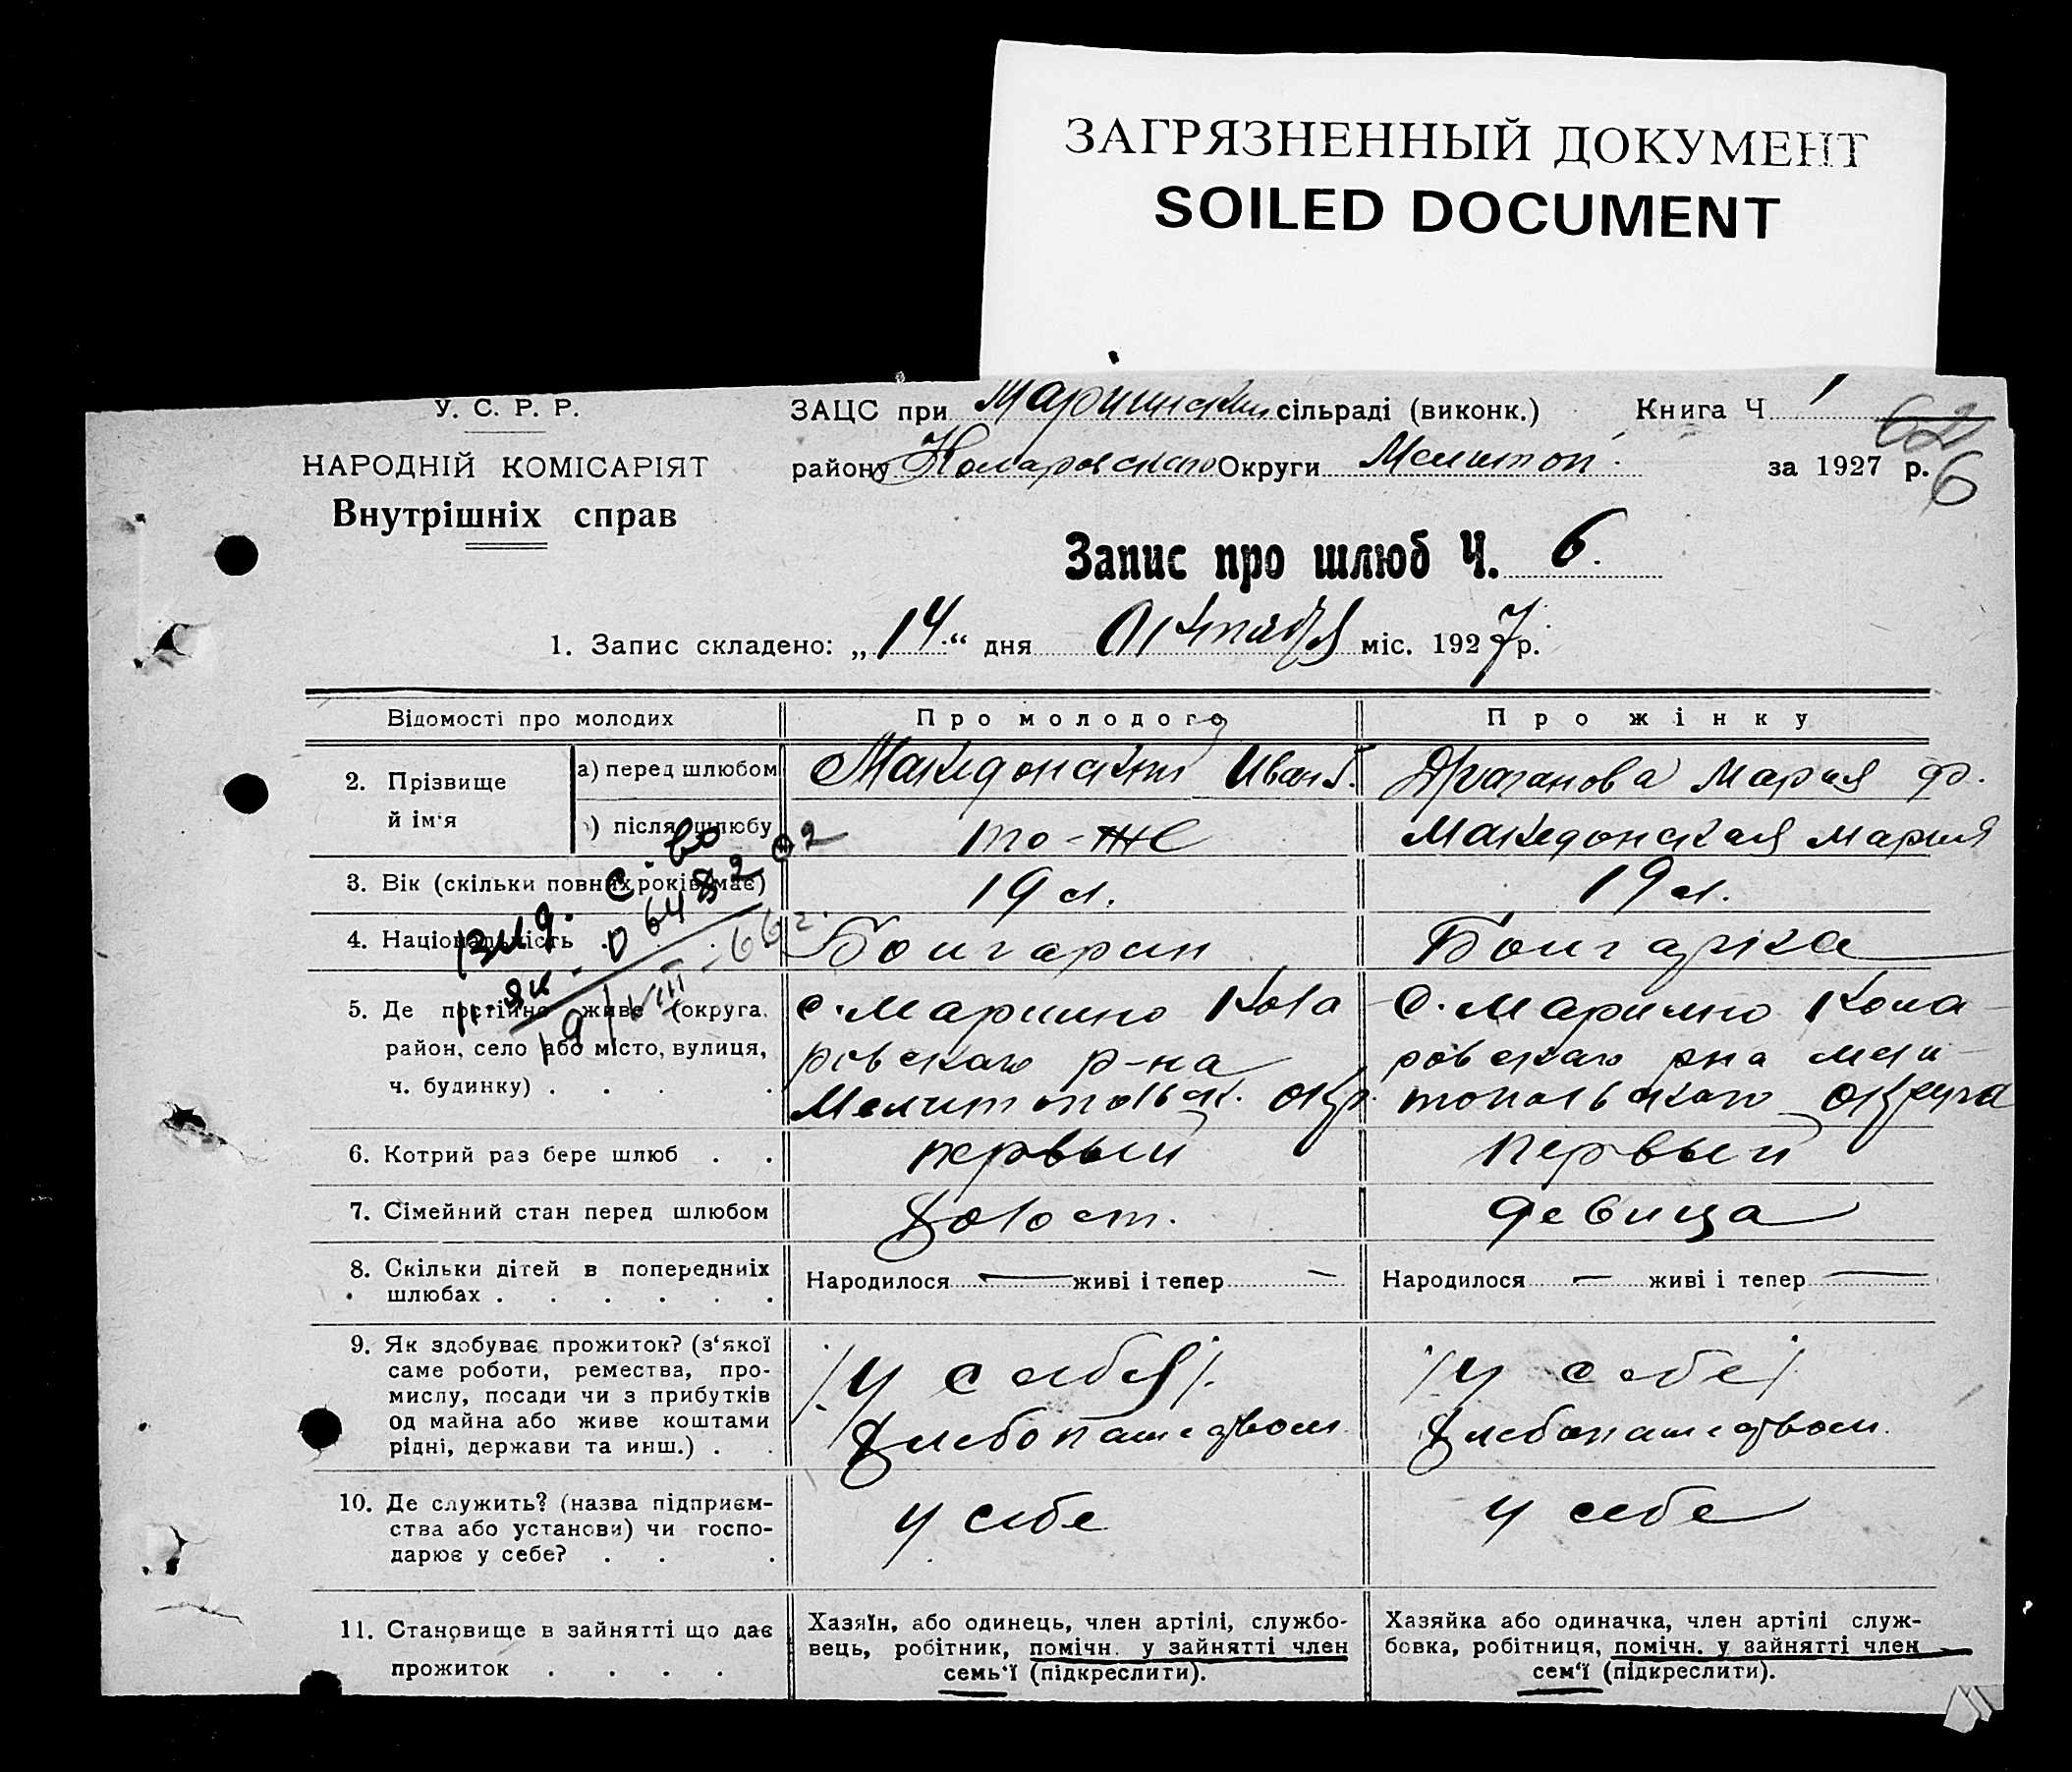 ЗАГРЯЗНЕННЫЙ ДОКУМЕНТ
SOILED DOCUMENT
У. С. Р. Р.
НАРОДНІЙ КОМІСАРІЯТ
Внутрішніх справ
ЗАЦС при Маріинским сільраді (виконк.) Книга Ч 1
62
району Коларовскаго Округи Мелитоп. за 1927 р.
6
Запис про шлюб Ч. 6.
1. Запис складено: „14“ дня Октября міс. 1927 р.
Відомості про молодих
Про молодого
Про жінку
2. Прізвище й ім'я
а) перед шлюбом
Македонский Иван Г.
Драганова Мария Ф.
) після шлюбу
то-же
Македонская Мария
3. Вік (скільки повних років має)
19 л.
19 л.
4. Національність
Болгарин
Болгарка
5. Де постійно живе (округа,
район, село або місто, вулиця,
ч. будинку) . . . .
с. Мариино Кола
ровскаго р-на
Мелитопольск. окр.
с. Мариино Кола-
ровскаго рна мели-
топольскаго округа
Выд. с-во
9/VIII-66 г.
6. Котрий раз бере шлюб . .
первый
первый
7. Сімейний стан перед шлюбом
Холост.
девица
8. Скільки дітей в попередніх
шлюбах . . . . . .
Народилося — живі і тепер —
Народилося — живі і тепер —
9. Як здобуває прожиток? (з‘якої
саме роботи, ремества, про-
мислу, посади чи з прибутків
од майна або живе коштами
рідні, держави та инш.) . .
/у себя/.
Хлебопашеством.
/у себе/.
Хлебопашеством.
10. Де служить? (назва підприєм-
ства або установи) чи госпо-
дарює у себе? . . .
у себе
у себе
11. Становище в зайнятті що дає
прожиток . . . .
Хазяїн, або одинець, член артілі, службо-
вець, робітник, помічн. у зайнятті член
семь‘ї (підкреслити).
Хазяйка або одиначка, член артілі служ-
бовка, робітниця, помічн. у зайнятті член
сем‘ї (підкреслити).